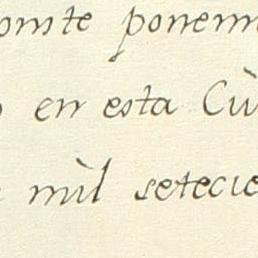 omte ponemo
en esta Ciu
mil setecie